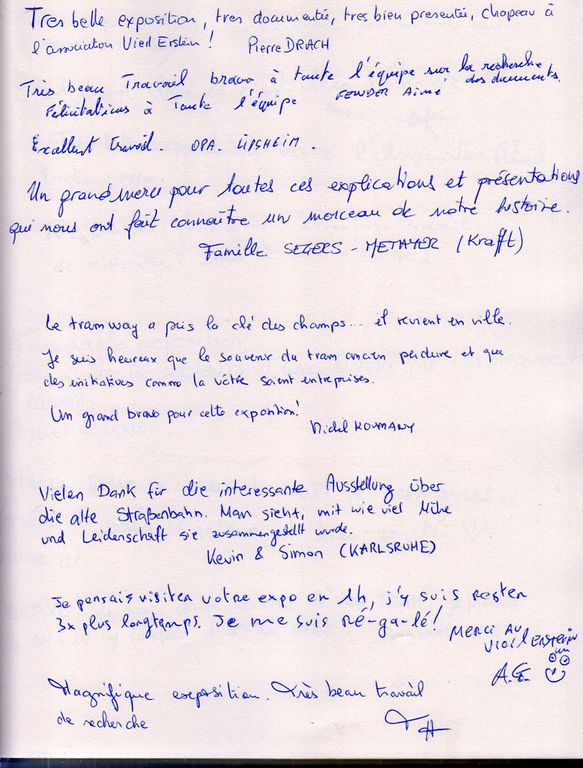 Tres belle exposition, tres documentée, tres bien presentée, chapeau à
l'association Vieil Erstein! Pierre DRACH
Très beau Travail bravo à toute l'équipe sur la recherche
des documents.
Félicitations à Toute l'équipe FENDER Aimé
Excellent travail. OPA. LIPSHEIM.
Un grand merci pour toutes ces explications et présentations
qui nous ont fait connaître un morceau de notre histoire.
Famille SEGERS - METAYER (Krafft)
Le tramway a pris la clé des champs... et revient en ville.
Je suis heureux que le souvenir du tram ancien perdure et que
des initiatives comme la vôtre soient entreprises.
Un grand bravo pour cette exposition!
Michel
Vielen Dank für die interessante Ausstellung über
die alte Straßenbahn. Man sieht, mit wie viel Mühe
und Leidenschaft sie zusammengestellt wurde.
Kevin & Simon (KARLSRUHE)
Je pensais visiter votre expo en 1h, j'y suis rester
3x plus longtamps. Je me suis ré-ga-lé!
MERCI AU
VIEIL ERSTEIN
A.G.
Magnifique exposition. Très beau travail
de recherche
TH